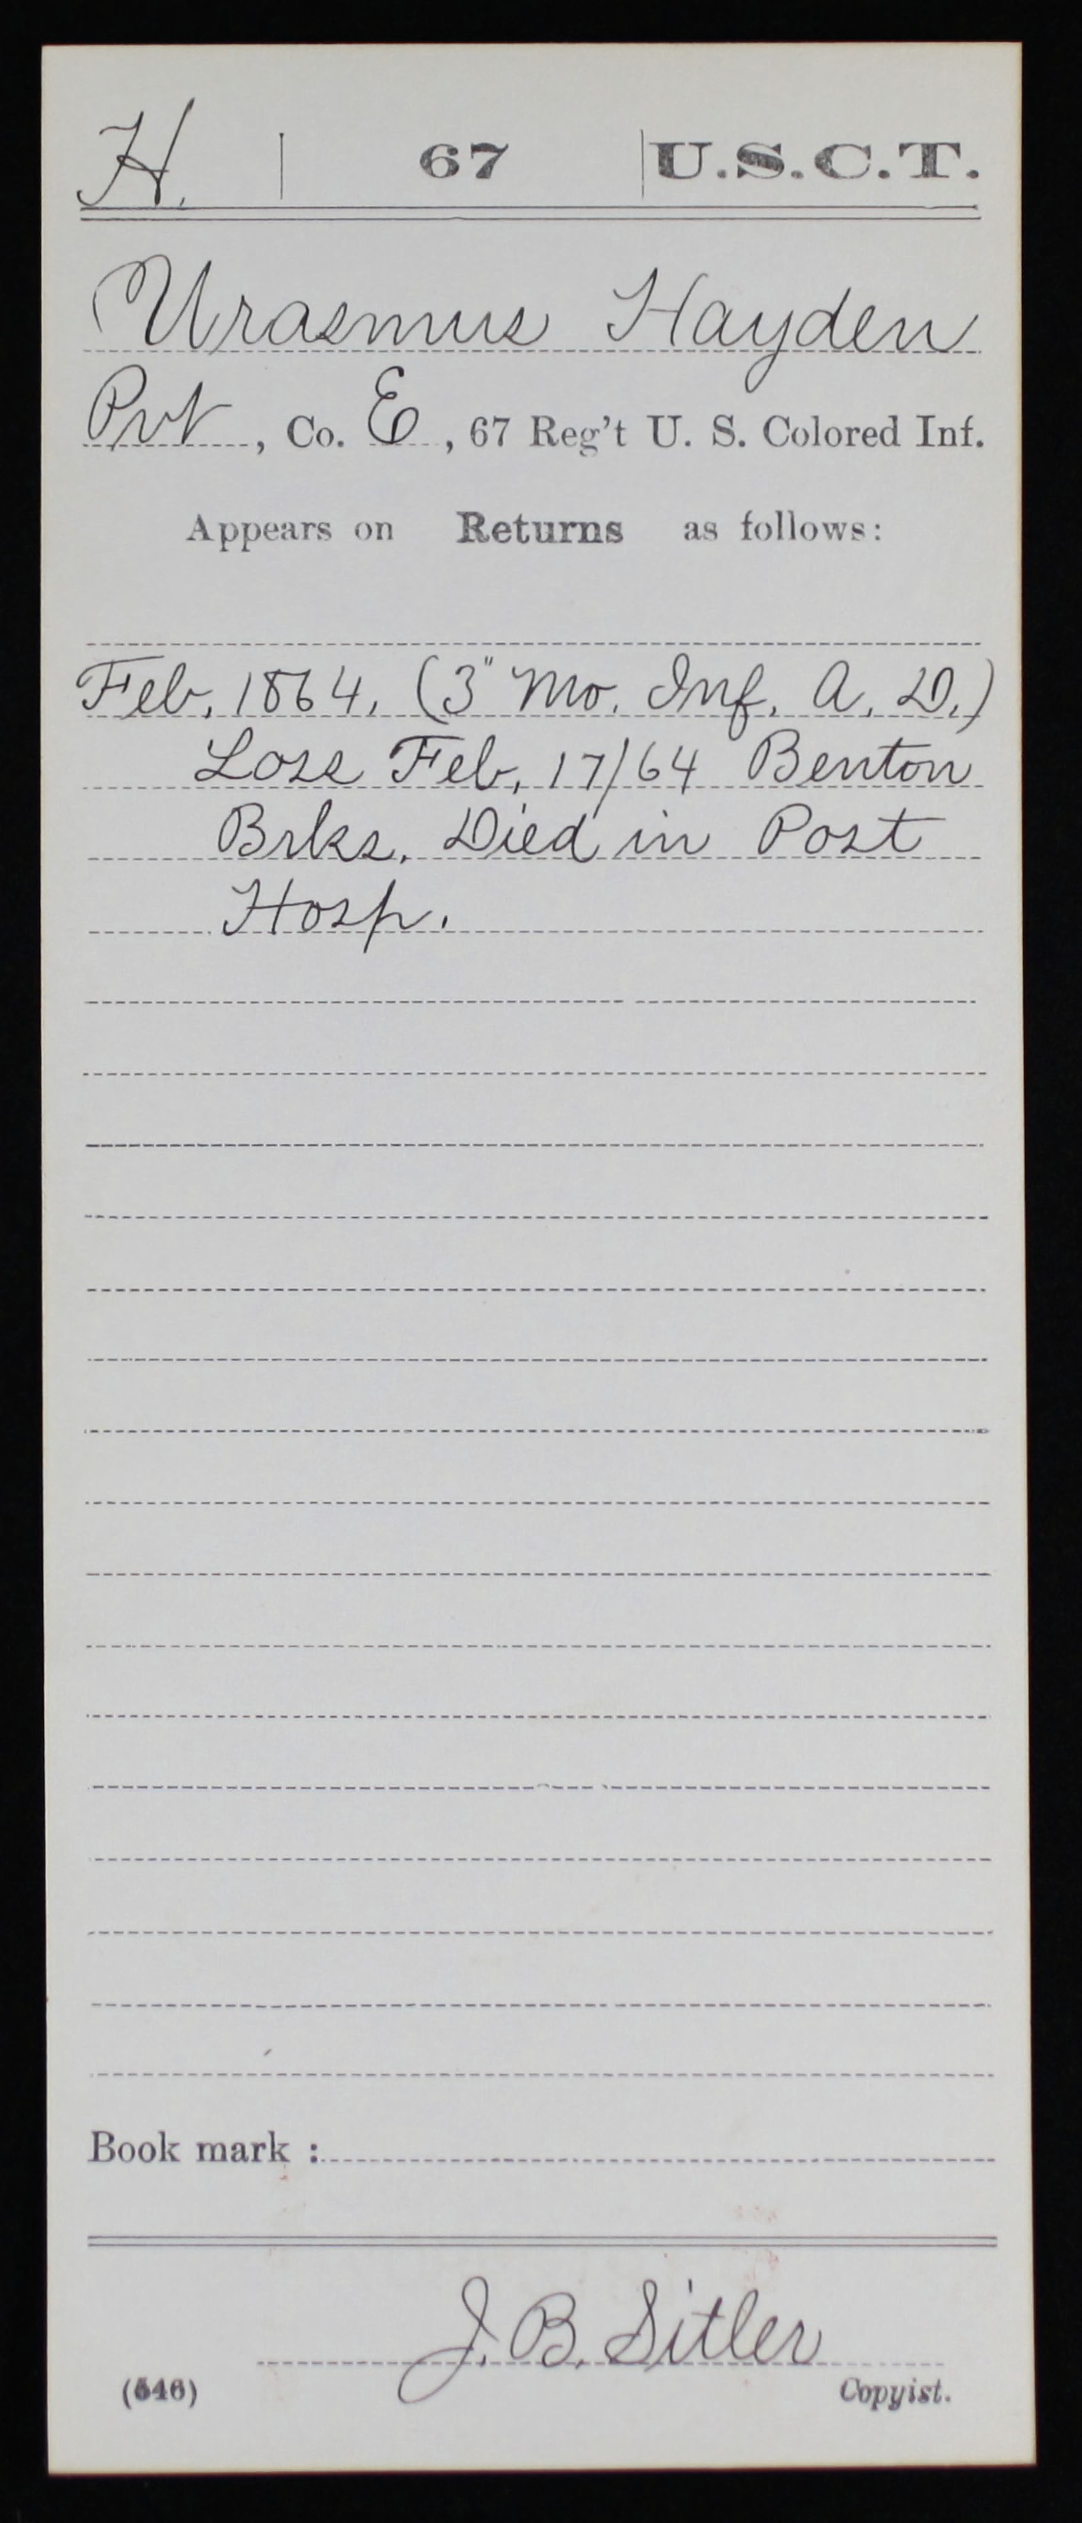 H. 67 U.S.C.T.
Urasmus Hayden
Pvt, Co. E, 67 Reg't U. S. Colored Inf.
Appears on Returns as follows:
Feb. 1864. (3" Mo. Inf. A. D.)
Loss Feb. 17/64 Benton
Brks. Died in Post
Hosp.
Book mark :
J. B. Sitler
(546) Copyist.